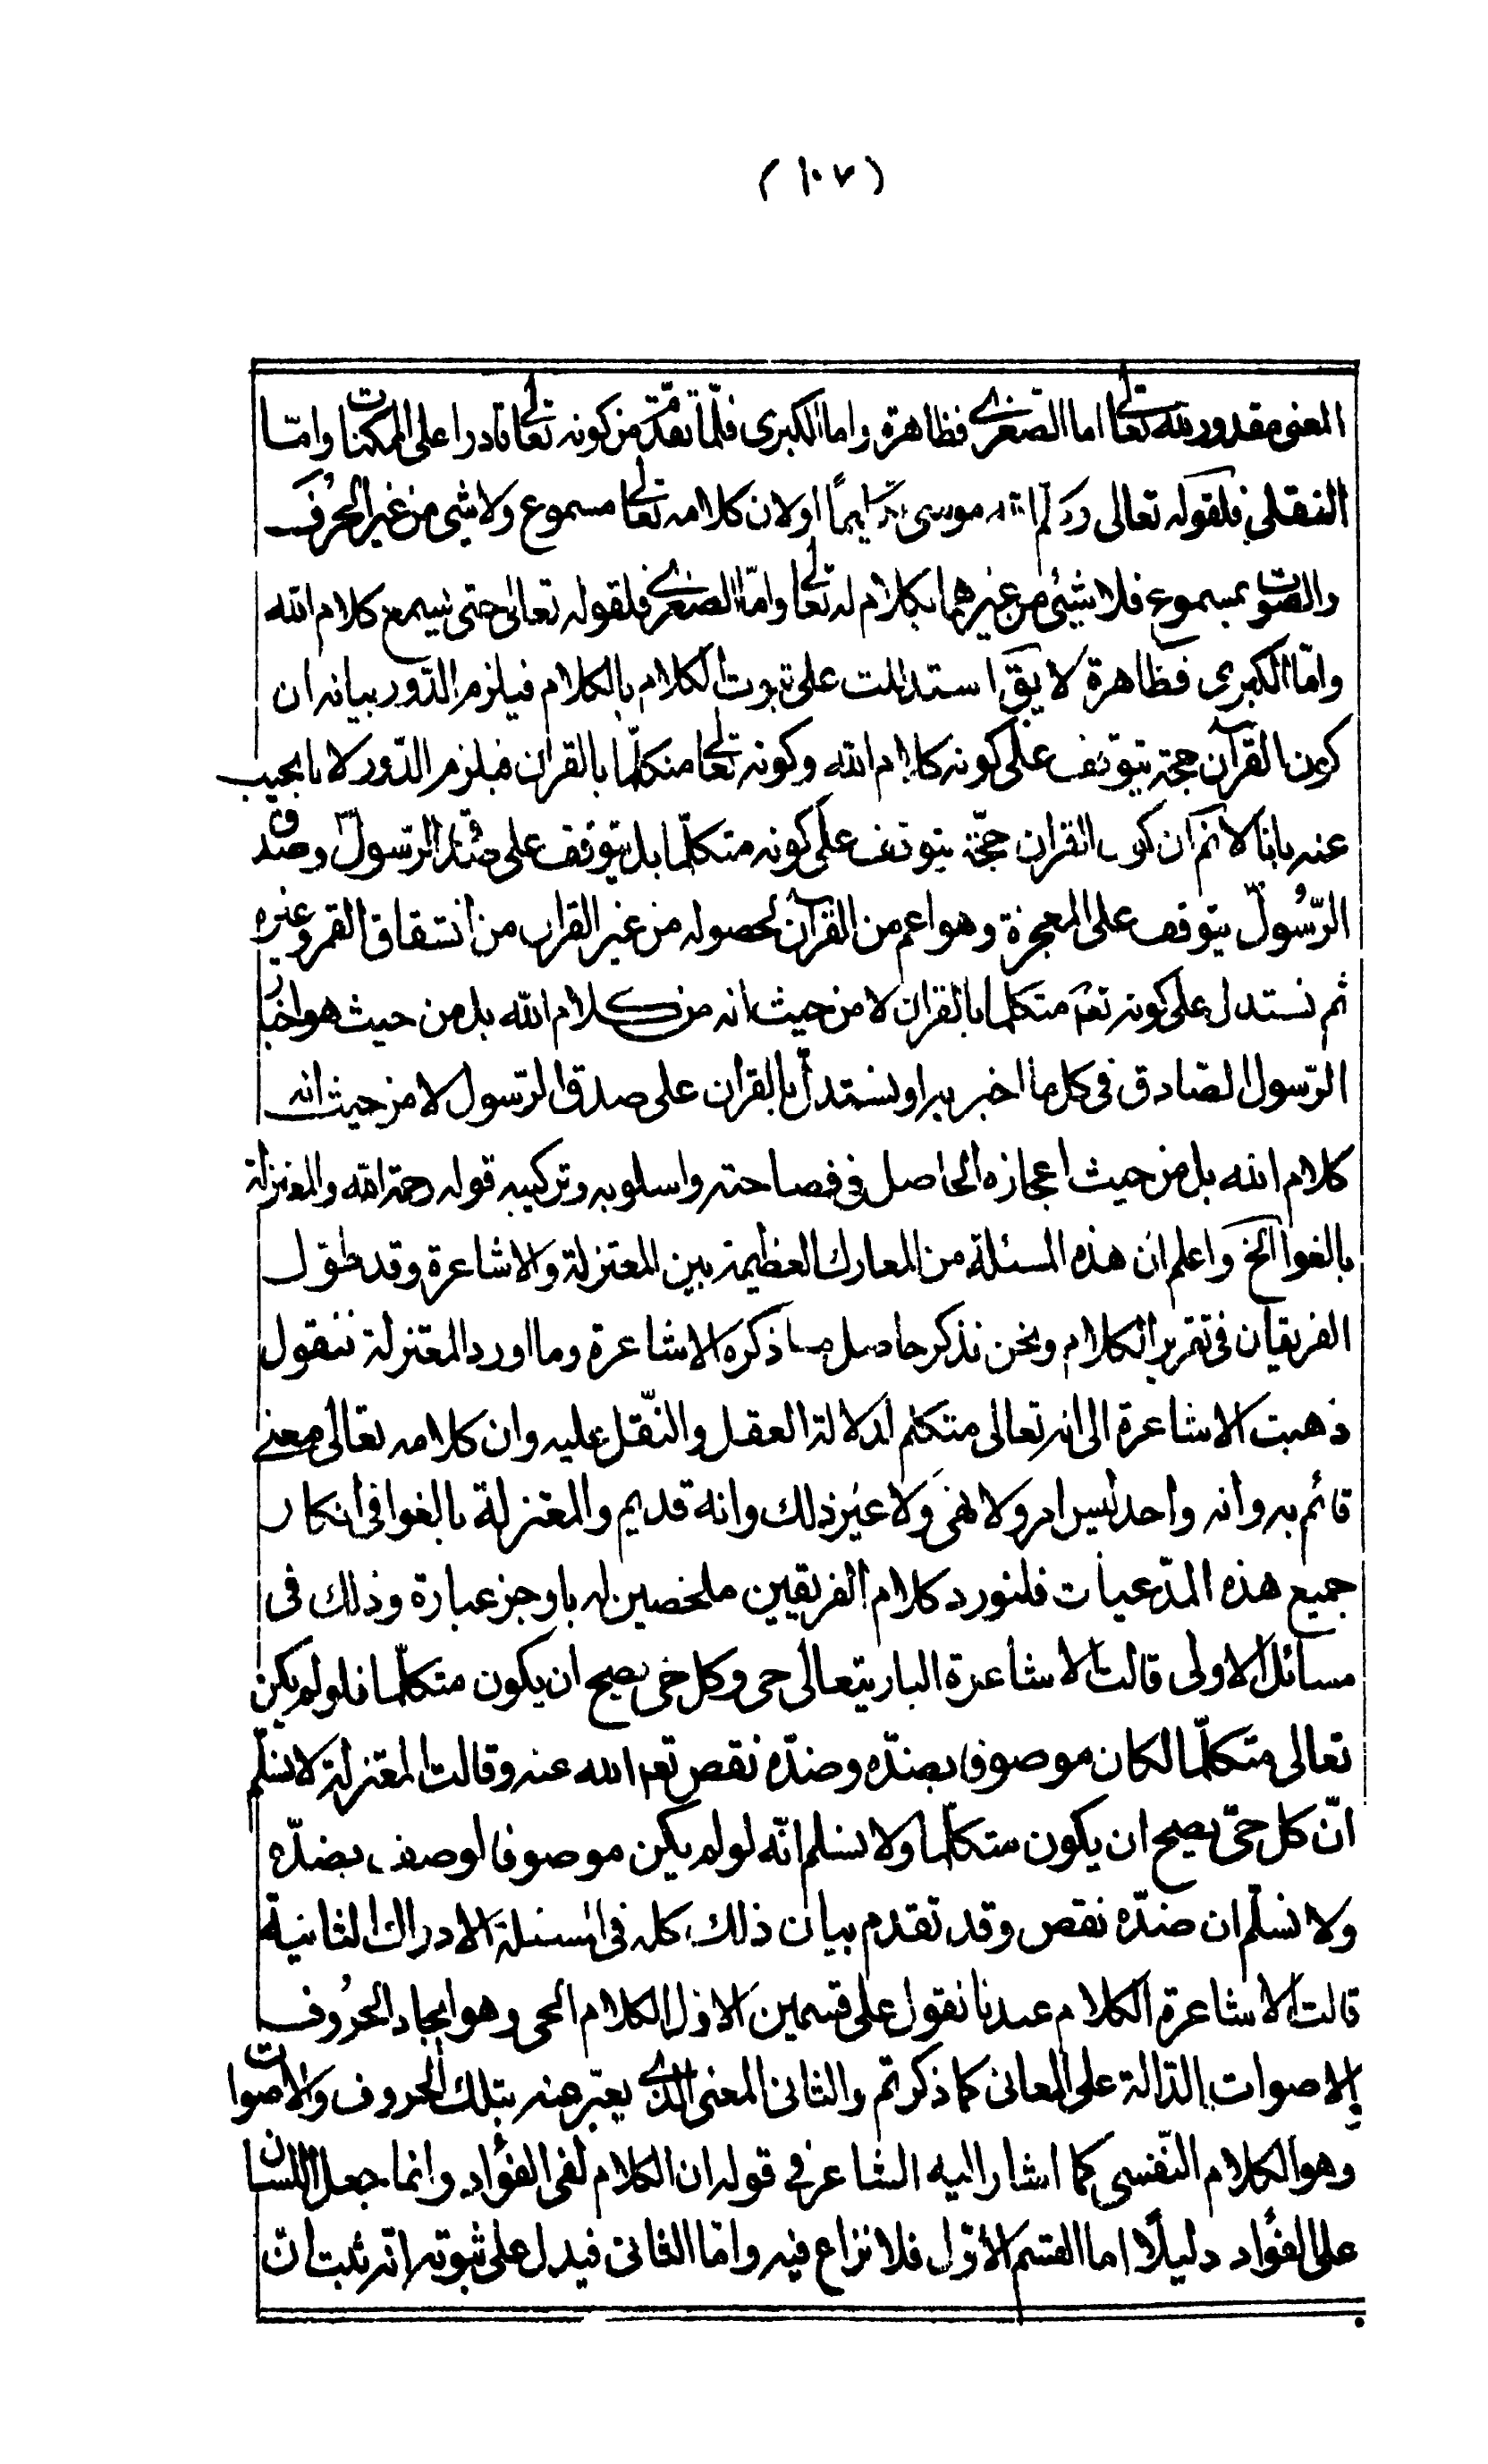 (١٠٧)
المعنى مقدور لله تعالى اما الصغرى فظاهرة واما الكبرى فلما تقدّم من كونه تعالى قادرا على الممكنات وامّا
النقلى فلقوله تعالى وكلم الله موسى تكليمًا اولان كلامه تعالى مسموع ولا شئ من غير الحروف
والصوت بمسموع فلا شئ من غيرهما بكلام له تعالى وامّا الصغرى فلقوله تعالى حتى يسمع كلام الله
وامّا الكبرى فظاهرة لا يق استدللت على ثبوت الكلام بالكلام فيلزم الدّور بيانه ان
كون القرآن حجة يتوقف على كونه كلام الله وكونه تعالى متكلّما بالقران فيلزم الدّور لانا نجيب
عنه بانا لا نم ان كون القران حجّة يتوقف على كونه متكلّما بل يتوقف على صدق الرّسول وصدق
الرّسول يتوقف على المعجزة وهو اعم من القرآن لحصوله من غير القران من انشقاق القمر وغيره
ثم نستدل على كونه تعم متكلما بالقران لا من حيث انه من كلام الله بل من حيث هو اخبار
الرّسول الصّادق فى كل ما اخبر به او نستدل بالقران على صدق الرّسول لا من حيث انه
كلام الله بل من حيث اعجازه الحاصل فى فصاحته واسلوبه وتركيبه قوله رحمة الله والمعتزلة
بالغوا الخ واعلم ان هذه المسئلة من المعارك العظيمة بين المعتزلة والاشاعرة وقد طوّل
الفريقان فى تقرير الكلام ونحن نذكر حاصل ما ذكره الاشاعرة وما اورد المعتزلة فنقول
ذهبت الاشاعرة الى انه تعالى متكلم لدلالة العقل والنّقل عليه وان كلامه تعالى معنى
قائم به وانه واحد ليس امر ولا نهى ولا غير ذلك وانه قديم والمعتزلة بالغوا فى انكار
جميع هذه المدّعيات فلنورد كلام الفريقين ملخصين له باوجز عبارة وذلك فى
مسائل الاولى قالت الاشاعرة البارى تعالى حى وكل حى يصح ان يكون متكلّما فلو لم يكن
تعالى متكلّما لكان موصوفا بضدّه وضدّه نقص تعم الله عنه وقالت المعتزلة لا نسلّم
انّ كل حىّ يصح ان يكون متكلّما ولا نسلم انّه لو لم يكن موصوفا لوصف بضدّه
ولا نسلّم ان ضدّه نقص وقد تقدم بيان ذلك كله فى مسئلة الادراك الثانية
قالت الاشاعرة الكلام عندنا نقول على قسمين الاول الكلام الحى وهو ايجاد الحروف
والاصوات الدّالة على المعانى كما ذكرتم والثانى المعنى الذى يعبّر عنه بتلك الحروف والاصوات
وهو الكلام النّفسى كما اشار اليه الشاعر فى قوله ان الكلام لفى الفؤاد وانما جعل اللسان
على الفؤاد دليلًا اما القسم الأوّل فلا نزاع فيه وامّا الثانى فيدل على ثبوته انه ثبت ان